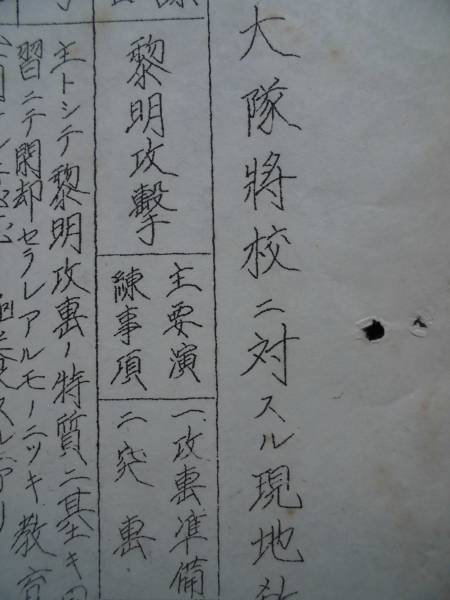 大隊將校ニ対スル現地
黎明攻撃
主要演
練事項
一、攻撃準備
二、突撃
主トシテ黎明攻撃ノ特質ニ基キ
習ニテ閑却セラレアルモノニツキ教育